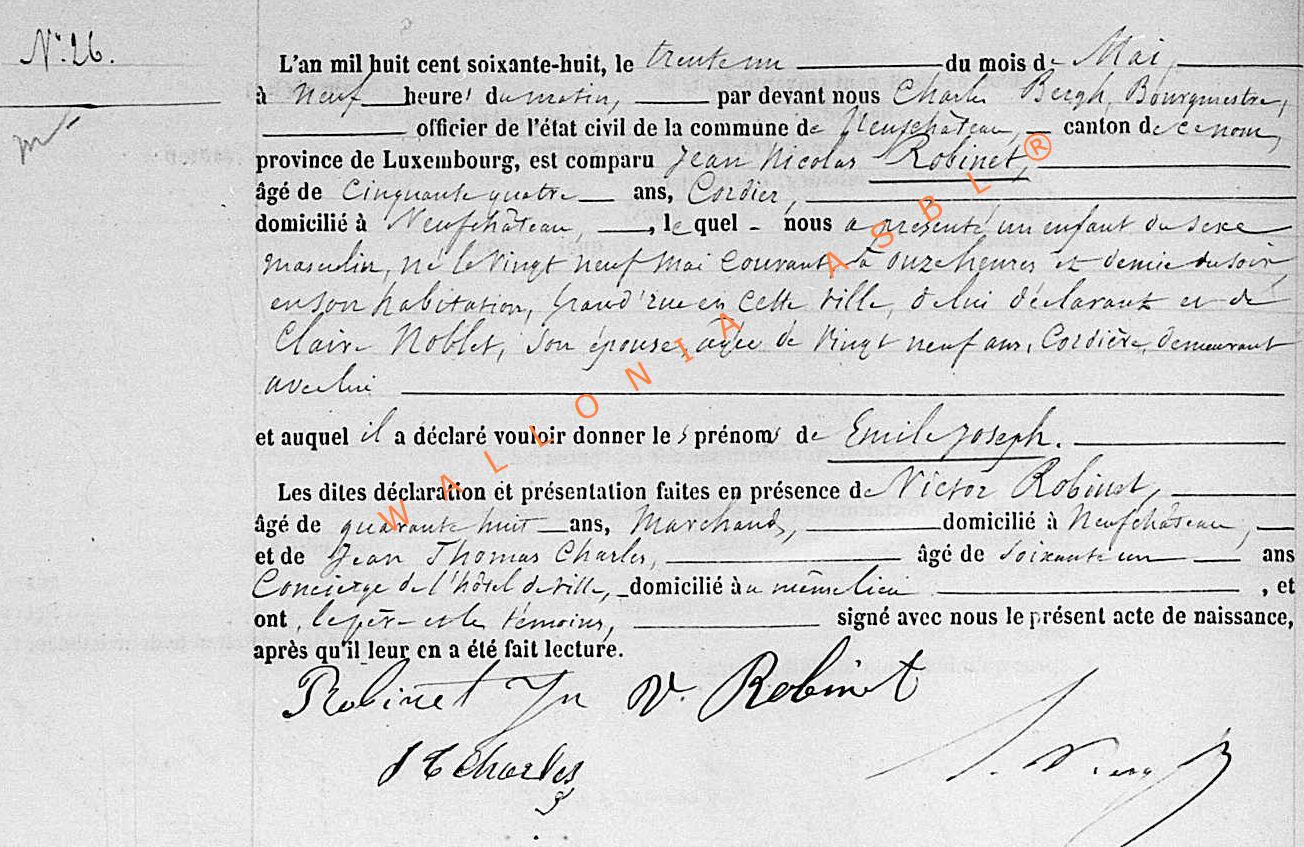 N° 26.
L'an mil huit cent soixante-huit, le trente un du mois de Mai,
à neuf heures du matin, par devant nous Charles Bergh, Bourgmestre,
officier de l'état civil de la commune de Neufchâteau, canton de ce nom,
province de Luxembourg, est comparu Jean Nicolas Robinet,
âgé de Cinquante quatre ans, Cordier,
domicilié à Neufchâteau, , lequel nous a présenté un enfant du sexe
masculin, né le vingt neuf mai courant à onze heures et demie du soir,
en son habitation, grand'rue en cette ville, de lui déclarant et de
Claire Noblet, son épouse, âgée de vingt neuf ans, Cordière, demeurant
avec lui
et auquel il a déclaré vouloir donner les prénoms de Emile Joseph.
Les dites déclaration et présentation faites en présence de Victor Robinet,
âgé de quarante huit ans, Marchand, domicilié à Neufchâteau,
et de Jean Thomas Charles, âgé de soixante un ans
Concierge de l'hôtel de ville, domicilié au même lieu , et
ont, le père et les témoins, signé avec nous le présent acte de naissance,
après qu'il leur en a été fait lecture.
Robinet Jn V. Robinet
J T Charles
WALLONIA ASBL ®